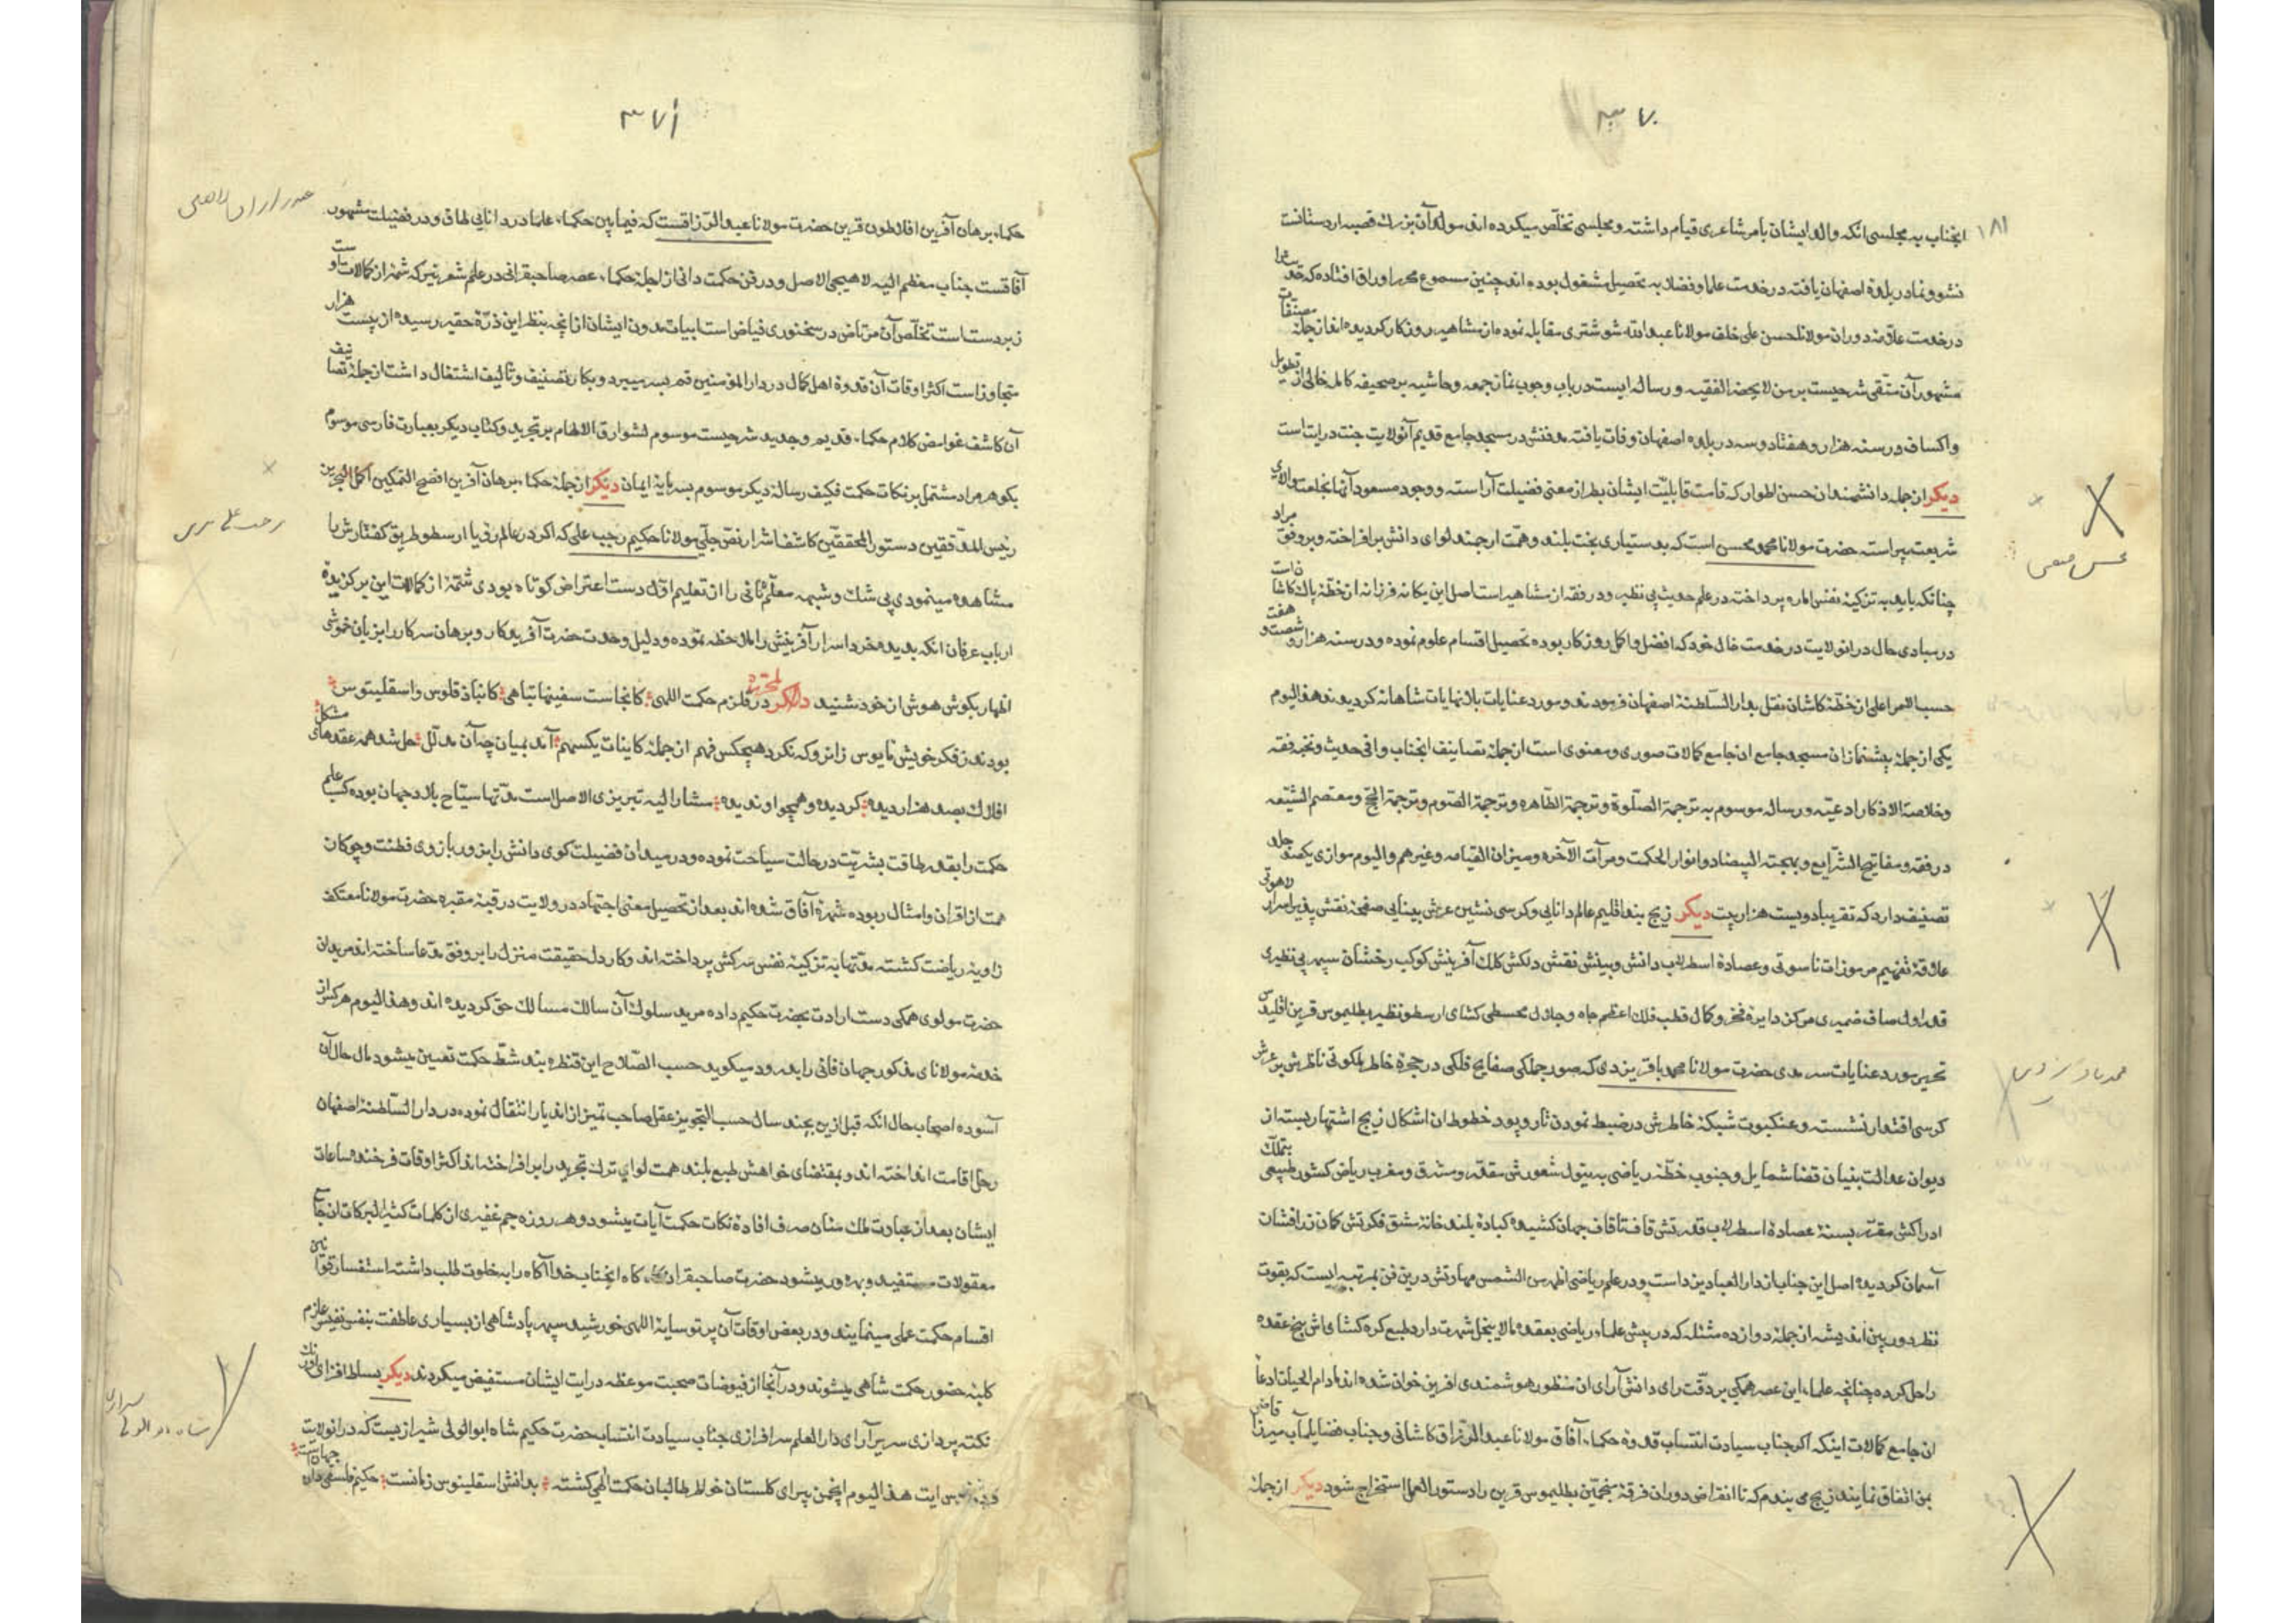 ۳۷۰
۱۸۱
انجناب به مجلسی انکه والد ایشان بامر شاعری قیام داشته و مجلسی تخلّص میکرده اند مولد آن بزرک قصبه اردستانست
نشو و نما در بلدهٔ اصفهان یافته در خدمت علما و فضلا به تحصیل مشغول بوده اند چنین مسموع محرر اوراق افتاده که
در خدمت علّامهٔ دوران مولانا حسن علی خلف مولانا عبدالله شوشتری مقابله نموده از مشاهیر روزکار کردیده اند از جمله مصنّفات
مشهور آن متّقی شرحیست بر من لا یحضره الفقیه و رساله ایست در باب وجوب نماز جمعه و حاشیه بر صحیفه کامله خالی از تطویل
و اکساف در سنه هزار و هفتاد و سه در بلده اصفهان وفات یافته مدفنش در مسجد جامع قدیم آنولایت جنت درایت است
دیکر از جمله دانشمندان حسن اطوار که قامت قابلیّت ایشان بطراز معنی فضیلت آراسته و وجود مسعود آنها بخلعت والای
شریعت پیراسته حضرت مولانا محمد محسن است که بدستیاری بخت بلند و همّت ارجمند لوای دانش برافراخته و بر وفق مراد
چنانکه باید به تزکیهٔ نفس اماره پرداخته در علم حدیث بی نظیر و در فقه از مشاهیر است اصل این یکانه فرزانه از خطّهٔ پاک کاشا
در مبادی حال در انولایت در خدمت خال خود که افضل و اکمل روزکار بوده تحصیل اقسام علوم نموده و در سنه هزار و شصت و هفت
حسب الامر اعلی از خطّهٔ کاشان نقل بدار السّلطنهٔ اصفهان فرمودند و مورد عنایات بلا نهایات شاهانه کردیدند هذا الیوم
یکی از جمله پیشنمازان مسجد جامع ان جامع کمالات صوری و معنوی است از جمله تصانیف انجناب وافی حدیث و نخبه فقه
و خلاصة الاذکار ادعیّه و رساله موسوم به ترجمة الصّلوة و ترجمة الطّاهره و ترجمة الصّوم و ترجمة الحج و معتصم الشیّعه
در فقه و مفاتیح الشّرایع و بهجته البیضاد و انوار الحکمت و مرآت الآخره و میزان القیامه و غیرهم و الیوم موازی یکصد جلد
تصنیف دارد که تقریبا دویست هزار بیت دیکر زیج بند اقلیم عالم دانایی و کرسی نشین عرش بینایی صفحهٔ نقش پذیر اسرار لاهوتی
علاقهٔ تفهیم مرموزات ناسوتی و عصادهٔ اسطرلاب دانش و بینش نقش دلکش کلک آفرینش کوکب رخشان سپهر بی نظیری
قدر اول صاف ضمیری مرکز دایرهٔ فخر و کمال قطب فلک اعظم جاه و جلال مجسطی کشای ارسطو نظیر بطلیموس قرین اقلیدس
تحریر مورد عنایات سرمدی حضرت مولانا محمد باقر یزدی که صور جملکی صفایح فلکی در حجرهٔ خاطر ملکوتی ناظرش بر عرش
کرسی اقتدار نشسته و عنکبوت شبکهٔ خاطرش در ضبط نمودن تار و پود خطوط ان اشکال زیج اشتهار بسته از
دیوان عدالت بنیان قضا شمایل و جنوب خطّهٔ ریاضی به تیول شعورش مقدّر و مشرق و مغرب ریاض کشور طبیعی بتملّک
ادراکش مقرّر بستهٔ عصادهٔ اسطرلاب قدرتش قاف تا قاف جهان کشیده کبادهٔ بلند خانهٔ مشق فکرتش کمان زرافشان
آسمان کردیده اصل این جناب از دار العباد یزد است و در علم ریاضی اظهر من الشمس مهارتش درین فن بمرتبه ایست که بقوت
نظر دوربین اندیشه از جمله دوازده مسئله که در پیش علماء ریاضی بعقده مالا ینحل شهرت دارد طبع کره کشای اش پنج عقده
را حل کرده چنانچه علماء این عصر همکی بر دقّت رای دانش آرای ان منظور هوشمندی افرین خوان شده اند مادام الحیات ادعا
ان جامع کمالات اینکه اکر جناب سیادت انتساب قدوه حکماء آفاق مولانا عبد الرّزاق کاشانی و جناب فضایلمآب میرزا قاضی
بمن اتفاق نمایند زیجی می بندم که تا انقراض دوران فرقهٔ منجمّین بطلیموس قرین را دستور العمل استخراج شود دیکر از جمله
محسن فیض
محمد باقر یزدی
۳۷۱
حکماء برهان آفرین افلاطون قرین حضرت مولانا عبد الرّزاقست که فیما بین حکماء علما در دانایی طاق و در فضیلت مشهور
آفاقست جناب معظم الیه لاهیجی الاصل و در فن حکمت دانی از اجلهٔ حکماء عصر صاحبقرانی در علم شعر نیز که شمهٔ از کمالات اوست
زبردست است تخلّص آن مرتاض در سخنوری فیاض است ابیات مدون ایشان از آنچه بنظر این ذرّهٔ حقیر رسیده از بیست هزار
متجاوز است اکثر اوقات آن قدوهٔ اهل کمال در دار المؤمنین قم بسر میبرد و بکار تصنیف و تالیف اشتغال داشت از جمله تصانیف
آن کاشف غوامض کلام حکماء قدیم و جدید شرحیست موسوم بشوارق الالهام بر تجرید و کتاب دیکر بعبارت فارسی موسوم
بکوهر مراد مشتمل بر نکات حکمت فکیف رساله دیکر موسوم بسرمایهٔ ایمان دیکر از جمله حکماء برهان آفرین افصح المتکمین اکمل المتبحرین
رئیس المدققین دستور المحققین کاشف اشرار نص جلی مولانا حکیم رجب علی که اکر در عالم رؤیا ارسطو طریق کفتارش را
مشاهده مینمودی بی شک و شبهه معلّم ثانی را از تعلیم اول دست اعتراض کوتاه بودی شمّهٔ از کمالات این برکزیدهٔ
ارباب عرفان انکه بدیده خرد اسرار آفرینش را ملاحظه نموده و دلیل وحدت حضرت آفریدکار و برهان سرکار را بزبان خموشی
اظهار بکوش هوش از خود شنیده لمحرّره در قلزم حکمت اللهی کانجاست سفینها تباهی کانباذ قلوس و اسقلینوس
بودند ز فکر خویش مایوس زانرو که نکرد هیچکس فهم از جمله کاینات یکسهم آمد بمیان چه آن مدلّل حل شد همه عقدهای مشکل
افلاک بصد هزار دیده کردیده و همچو او ندیده مشار الیه تبریزی الاصل است مدّتها سیّاح بلاد جهان بوده کسب علم
حکمت را بقدر طاقت بشریّت در حالت سیاحت نموده و در میدان فضیلت کوی دانش را بزور بازوی فطنت و چوکان
همت از اقران و امثال ربوده شهرهٔ آفاق شده اند بعد از تحصیل معنی اجتهاد در ولایت در قبهٔ مقبره حضرت مولانا معتکف
زاویهٔ ریاضت کشته مدّتها به تزکیهٔ نفس سرکش پرداخته اند و کار دل حقیقت منزل را بر وفق مدّعا ساخته اند مریدان
حضرت مولوی همکی دست ارادت بحضرت حکیم داده مرید سلوک آن سالک مسالک حق کردیده اند و هذا الیوم هر کس از
خدمهٔ مولانای مذکور جهان فانی را بدرود میکوید حسب الصّلاح این قنطره بند شطّ حکمت تعیین میشود مال حال آن
آسوده اصحاب حال انکه قبل ازین بچند سال حسب التجویز عقل صاحب تمیز از اندیار انتقال نموده در دار السّلطنهٔ اصفهان
رحل اقامت انداخته اند و بمقتضای خواهش طبع بلند همت لوای ترک تجرید را برافراخته اند اکثر اوقات فرخنده ساعات
ایشان بعد از عبادت ملک منان صرف افادهٔ نکات حکمت آیات میشود و هر روزه جم غفیری از کلمات کثیر البرکات ان جامع
معقولات مستفید و بهره ور میشود حضرت صاحبقران کاه کاه انجناب خدا آکاه را به خلوت طلب داشته استفسار قوانین
اقسام حکمت عملی مینمایند و در بعض اوقات آن پرتو سایهٔ اللهی خورشید سپهر پادشاهی از بسیاری عاطفت بنفس نفیس عازم
کلبهٔ حضور حکمت شاهی میشوند و در آنجا از فیوضات صحبت موعظه درایت ایشان مستفیض میکردند دیکر بساط افزای اورنک
نکته پردازی سریر آرای دار العلم سرافرازی جناب سیادت انتساب حضرت حکیم شاه ابوالولی شیرازیست که در انولایت
هذا الیوم انجمن پیرای کلستان خواطر طالبان حکمت الهی کشته بدانش اسقلینوس زمانست حکیم فلسفی دان جهانست
رجب علی تبریزی
شاه ابوالولی شیرازی